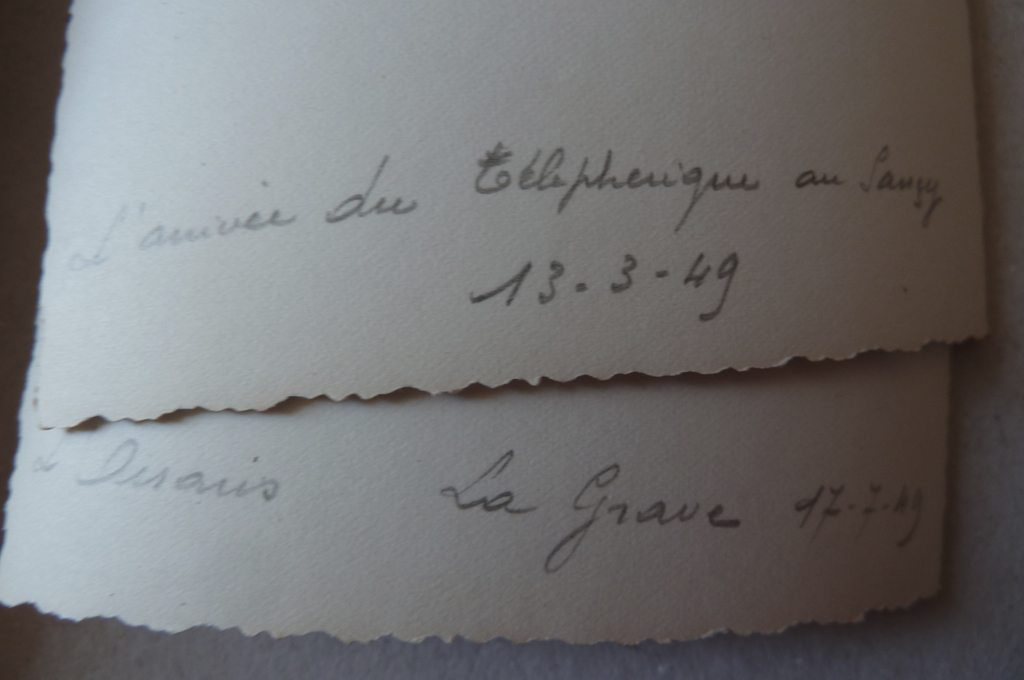 L'arrivée du Télépherique au Sancy
13-3-49
La Grave 17-7-49